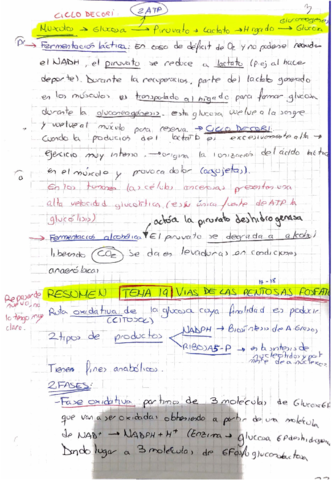 CICLO DE CORI
2 ATP
gluconeogénesis
Músculo → Glucosa → Piruvato → Lactato → Hígado → Glucosa
Fermentación láctica: en caso de déficit de O2 y no poderse
el NADH, el piruvato se reduce a lactato (p.ej al hacer
deporte). Durante la recuperación, parte del lactato generado
en los músculos es transportado al hígado para formar glucosa
durante la gluconeogénesis. esta glucosa vuelve a la sangre
y vuelve al músculo para reserva → CICLO DE CORI
Cuando la producción del lactato es excesivamente alta →
ejercicio muy intenso → origina la ionización del ácido láctico
en el músculo y provoca dolor (agujetas).
En los tumores (a) células cancerosas presentan una
alta velocidad glucolítica (es su única fuente de ATP la
glucólisis)
actúa la piruvato deshidrogenasa
Fermentación alcohólica: El piruvato se degrada a alcohol
liberando CO2 Se da en levaduras en condiciones
anaeróbicas
RESUMEN TEMA 19 VÍAS DE LAS PENTOSAS FOSFATO
Ruta oxidativa de la glucosa cuya finalidad es producir
(CITOSOL)
2 tipos de productos
NADPH → Biosíntesis de A. Grasos
RIBOSA 5-P → en la síntesis de
nucleótidos y por
Tienen fines anabólicos.
2 FASES:
- Fase oxidativa partimos de 3 moléculas de Glucosa 6P
que van a ser oxidadas obteniendo a partir de una molécula
de NAD+ → NADPH + H+ (Enzima → glucosa 6P deshidrogenasa
Dando lugar a 3 moléculas de 6 Fosfogluconolactona